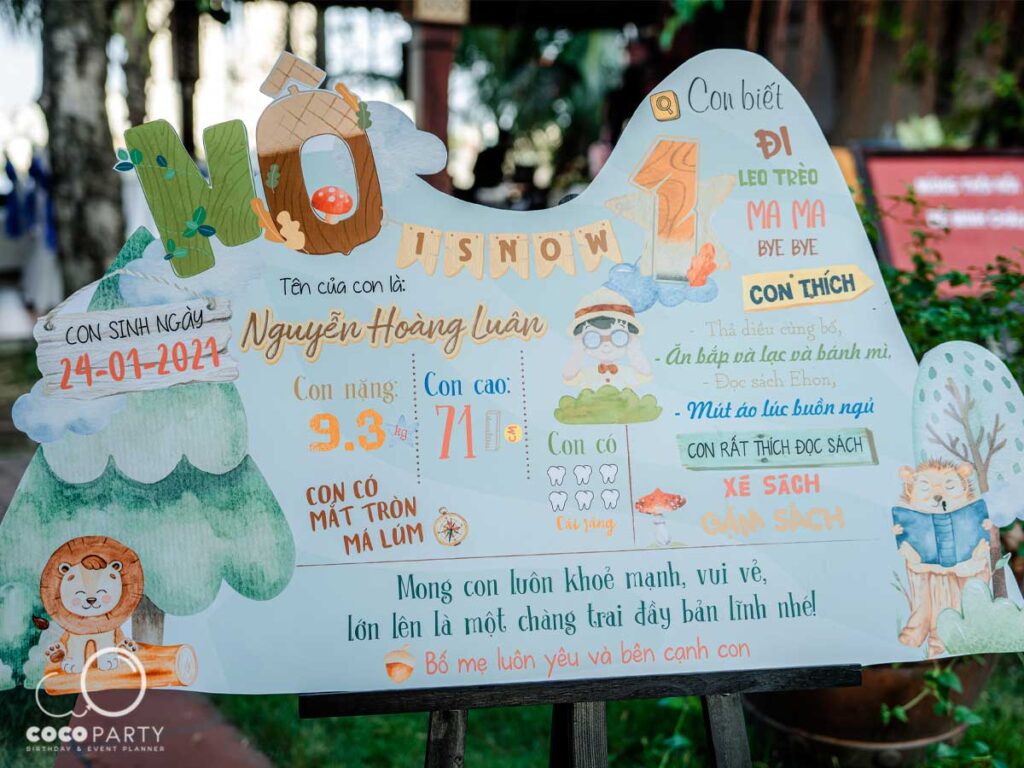 NÔ
IS NOW
1
Tên của con là:
Nguyễn Hoàng Luân
CON SINH NGÀY
24-01-2021
Con nặng:
9.3 kg
Con cao:
71
CON CÓ
MẮT TRÒN
MÁ LÚM
Con có
Cái răng
Con biết
ĐI
LEO TRÈO
MA MA
BYE BYE
CON THÍCH
- Thả diều cùng bố,
- Ăn bắp và lạc và bánh mì,
- Đọc sách Ehon,
- Mút áo lúc buồn ngủ
CON RẤT THÍCH ĐỌC SÁCH
XÉ SÁCH
GẶM SÁCH
Mong con luôn khoẻ mạnh, vui vẻ,
lớn lên là một chàng trai đầy bản lĩnh nhé!
Bố mẹ luôn yêu và bên cạnh con
COCO PARTY
BIRTHDAY & EVENT PLANNER